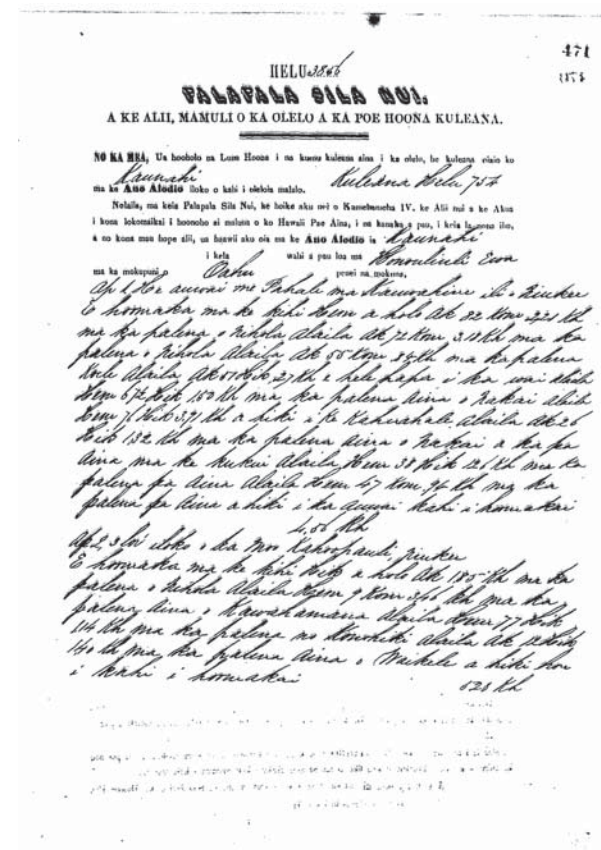 471
1878
HELU 3856
PALAPALA SILA NUI.
A KE ALII, MAMULI O KA OLELO A KA POE HOONA KULEANA.
NO KA MEA, Ua hooholo na Luna Hoona i na kumu kuleana aina i ka olelo, he kuleana oiaio ko
Kaunahi Kuleana Helu 754
ma ke Ano Alodio iloko o kahi i oleloia malalo.
Nolaila, ma keia Palapala Sila Nui, ke hoike aku nei o Kamehameha IV. ke Alii nui a ke Akua
i kona lokomaikai i hoonoho ai maluna o ko Hawaii Pae Aina, i na kanaka a pau, i keia la nona iho,
a no kona mau hope alii, ua haawi aku oia ma ke Ano Alodio ia Kaunahi
i kela wahi a pau loa ma Honouliuli Ewa
ma ka mokupuni o Oahu penei na mokuna,
Ap 1, He auwai me Pahale ma Kauwahine ili o Niukee
E hoomaka ma ke kihi Hem a holo Ak 82 Kom 221 Kh
ma ka palena o Nihola Alaila Ak 72 Kom 3.18 Kh ma ka
palena o Nihola Alaila Ak 55 Kom 84 Kh ma ka palena
Alaila Ak 51 Hik ,27 Kh e hele hapa i ka wai alaila
Hem 67½ Hik 150 Kh ma ka palena Aina o Nakai alaila
Hem 76 Hik 3,91 Kh a hiki i ke Kahuahale Alaila Ak 26
Hik 132 Kh ma ka palena aina o Nakai a ka pa
Aina ma ke kukui Alaila Hem 38 Hik 126 Kh ma ka
palena pa Aina Alaila Hem 47 Kom ,94 Kh ma ka
palena pa Aina a hiki i ka auwai kahi i hoomakai
4,56 Kh
Ap 2, 3 loi iloko o ka moo Kahoopauli, Niukee
E hoomaka ma ke kihi Hik a holo Ak 185 Kh ma ka
palena o Nihola Alaila Hem 9 Kom 356 Kh ma ka
palena Aina o Kawahamana Alaila Hem 77 Hik
114 Kh ma ka palena no Konohiki alaila Ak Hik
140 Kh ma ka palena Aina o Waikele a hiki hou
i kahi i hoomakai 528 Kh